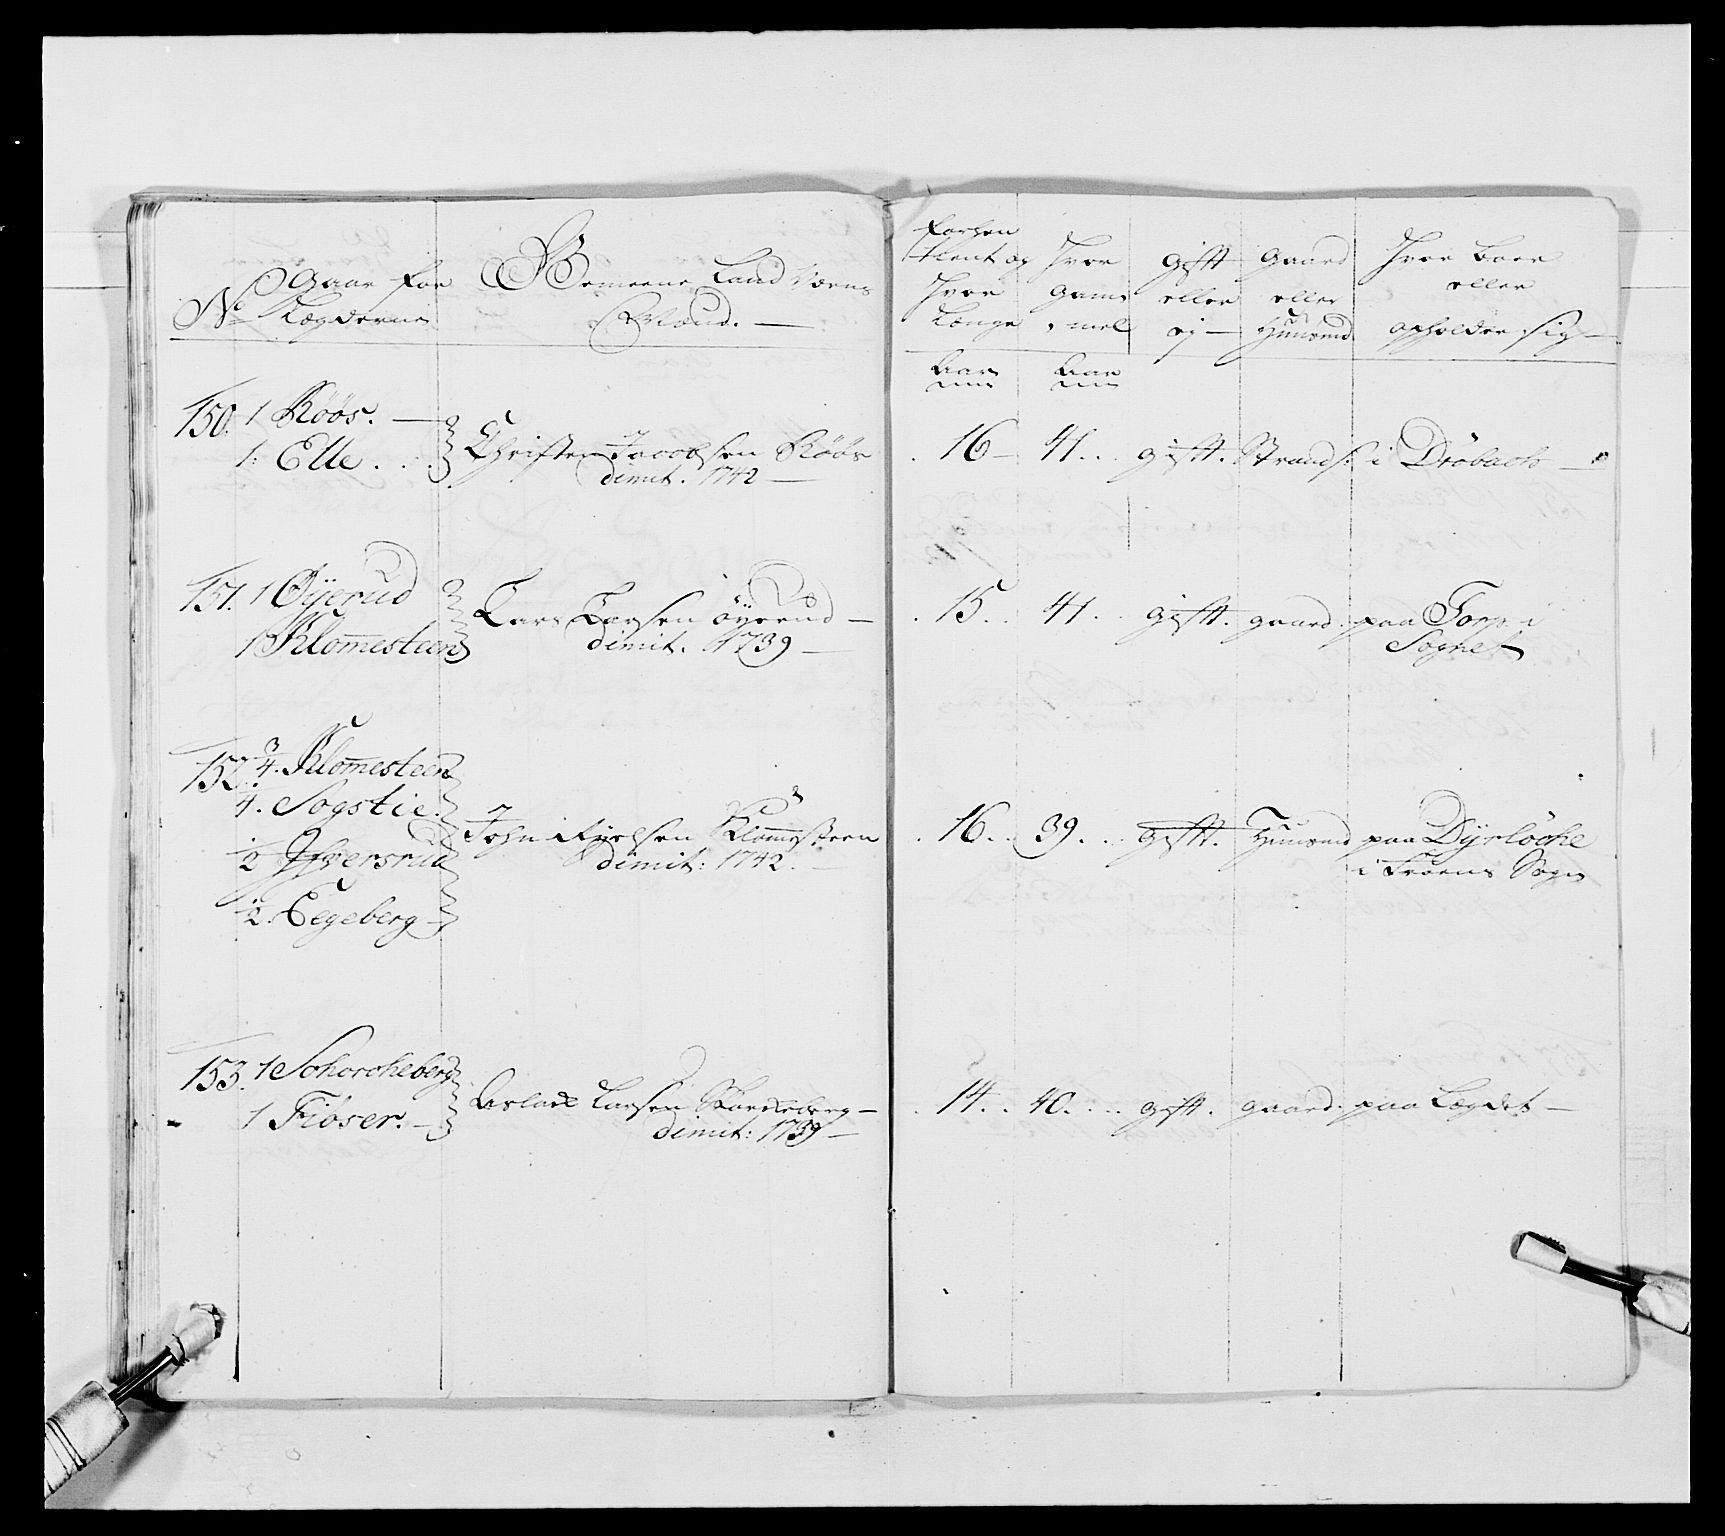 No Gaar for Lægderne
Gemeene Land Værns Mænd. —
forhen tient og hvor Længe
hvor gam mel
gift eller ej —
gaard eller Huusmd
hvor boer eller opholder sig —
Aar Aar
150. 1 Röös. —
1: Elle.
Christen Jacobsen Röös
dimit. 1742 —
16 — 41. gift. Strands: i Dröbach —
151. 1 Öijerud
1 Klomesteen
Lars Larsen öyerud —
dimit. 1739 —
15. 41. gift. gaard: paa Torp i
Sognet
152. 3/4. Klomesteen
1/4. Sogstie.
1/2 Ifversrud
1/2. Eegeberg —
John Nielsen Klommesteen
dimit: 1742. —
16. 39. gift. Huusmd paa Dyrlöche
i Froens Sogn
153. 1 Schorcheberg
1 Fiöser. —
Aslach Larsen Skorcheberg —
dimit: 1739 —
14. 40. gift. gaard: paa Lægdet —